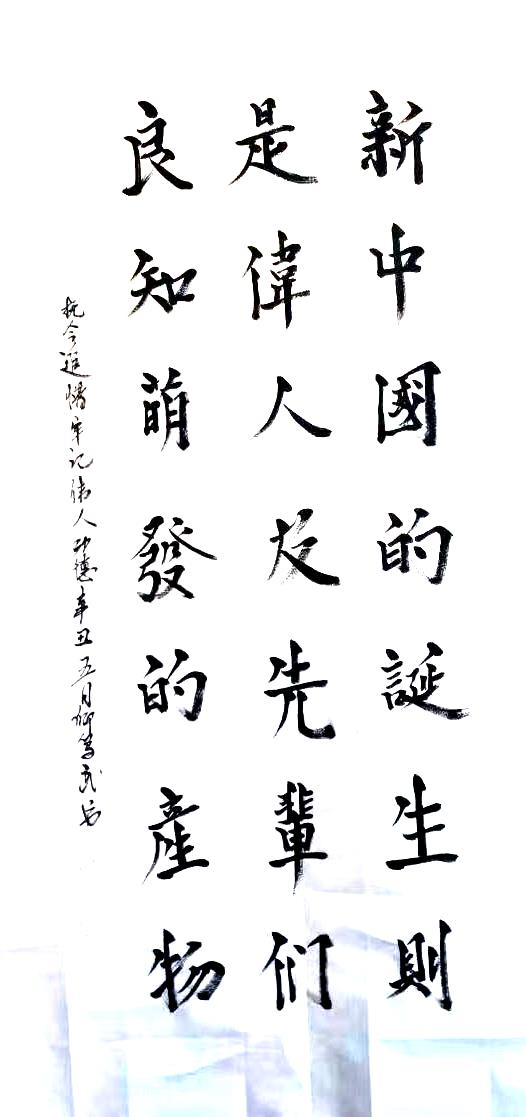 新中國的誕生則
是偉人及先輩们
良知萌發的產物
抚今追惜牢记伟人功德辛丑五月书